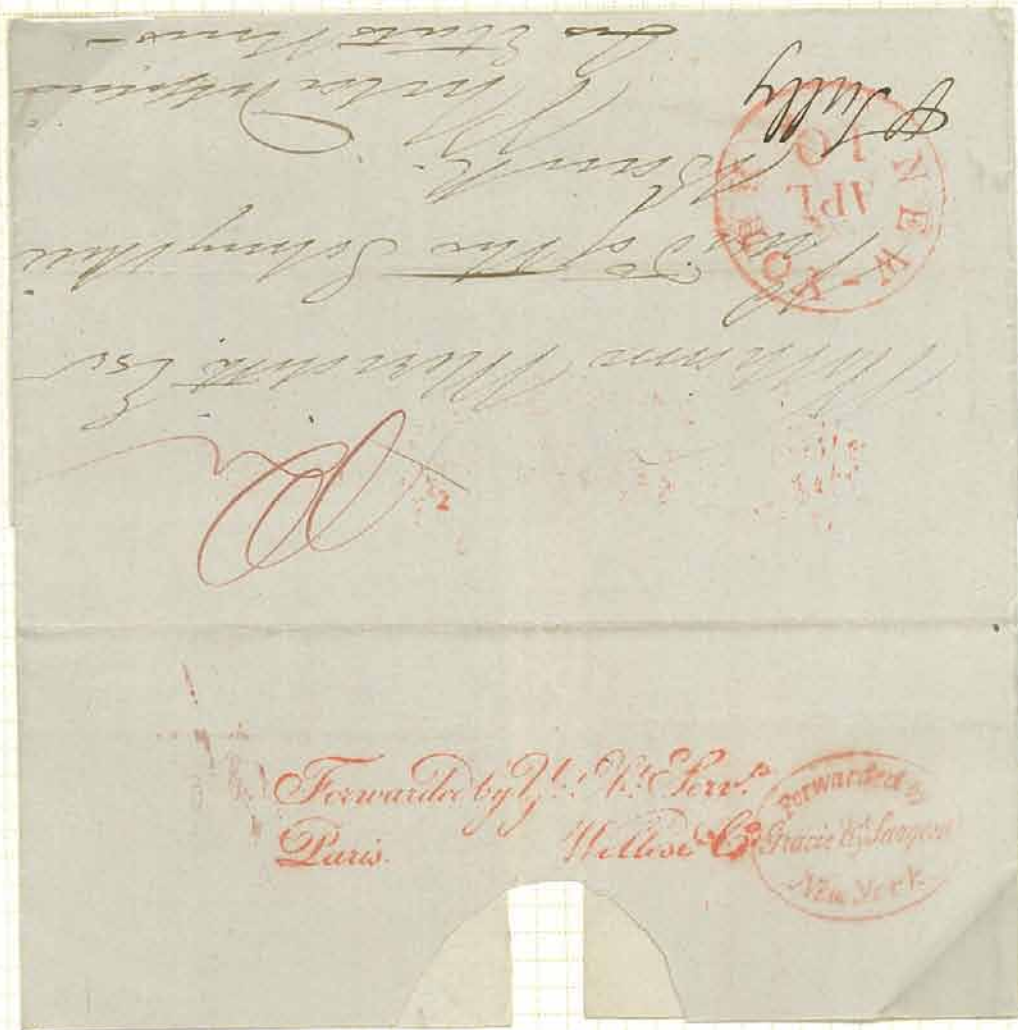 William Meredith Esq
of the Schuylkill
Bank
Philadelphia
Les Etats Unis
p Sully
NEW-YORK
APL
10
Forwarded by Yr. Ob. Servts
Paris. Welles & Co
Forwarded by
Gracie & Sargent
New York.